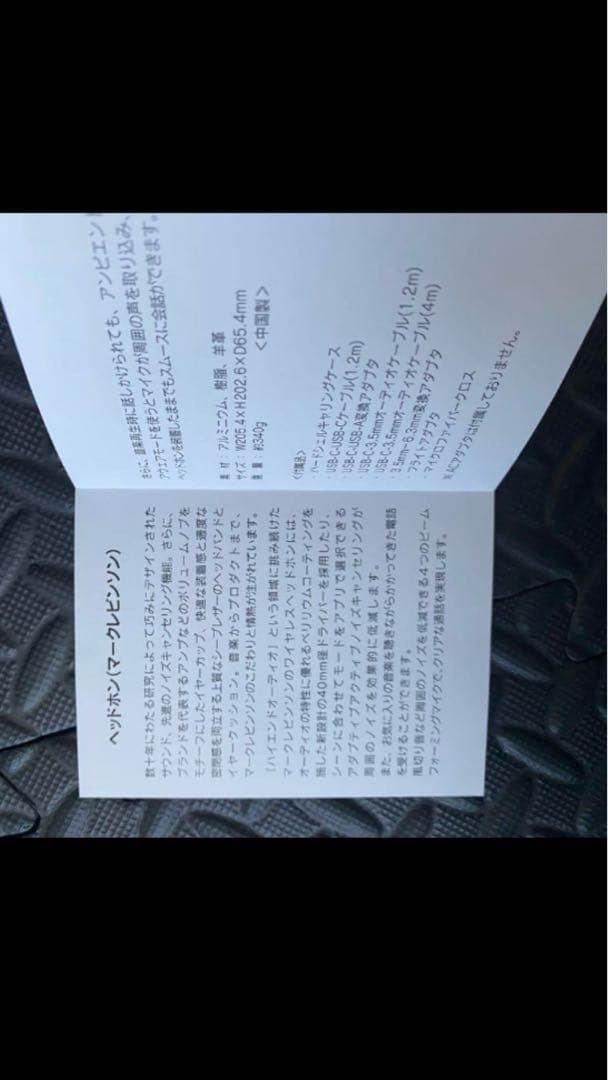 ヘッドホン(マークレビンソン)
数十年にわたる研究によって巧みにデザインされた
サウンド、先進のノイズキャンセリング機能。さらに、
ブランドを代表するアンプなどのボリュームノブを
モチーフにしたイヤーカップ、快適な装着感と適度な
密閉感を両立する上質なシープレザーのヘッドバンドと
イヤークッション。音楽からプロダクトまで、
マークレビンソンのこだわりと情熱が注がれています。
「ハイエンドオーディオ」という領域に挑み続けた
マークレビンソンのワイヤレスヘッドホンには、
オーディオの特性に優れるベリリウムコーティングを
施した新設計の40mm径ドライバーを採用したり、
シーンに合わせてモードをアプリで選択できる
アダプティブアクティブノイズキャンセリングが
周囲のノイズを効果的に低減します。
また、お気に入りの音楽を聴きながらかかってきた電話
を受けることができます。
風切り音など周囲のノイズを低減できる4つのビーム
フォーミングマイクで、クリアな通話を実現します。
さらに、音楽再生時に話しかけられても、アンビエント
アウェアモードを使うとマイクが周囲の声を取り込み、
ヘッドホンを装着したままでもスムースに会話ができます。
素 材：アルミニウム、樹脂、羊革
サイズ：W205.4×H202.6×D65.4mm
重 量：約340g
＜中国製＞
〈付属品〉
・ハードシェルキャリングケース
・USB-C-USB-Cケーブル(1.2m)
・USB-C-USB-A変換アダプタ
・USB-C-3.5mmオーディオケーブル(1.2m)
・USB-C-3.5mmオーディオケーブル(4m)
・3.5mm－6.3mm変換アダプタ
・フライトアダプタ
・マイクロファイバークロス
※ACアダプタは付属しておりません。